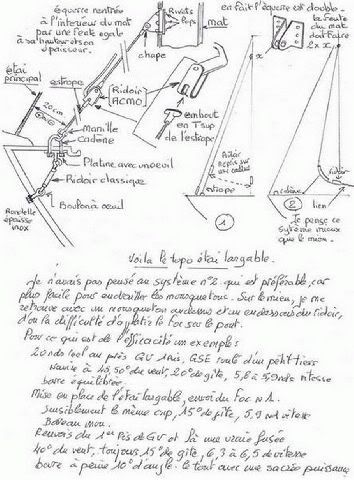 équerre rentrée
à l'intérieur du mat
par une fente égale
à sa hauteur et son
épaisseur.
Rivets
Pops
mat
en fait l'équerre est double
la fente
du mat
doit faire
2 x x
étai
principal
estrope
chape
Ridoir
ACMO
20cm
Manille
cadène
embout
en T sup
de l'estrope
Platine avec un oeil
Ridoir classique
Boulon à oeil
Rondelle
épaisse
inox
Ridoir
repris sur
une cadène
estrope
1
Ridoir
cadène
lien
2
Je pense ce
système mieux
que le mien.
Voila le topo étai largable.
Je n'avais pas pensé au système n°2 qui est préférable, car
plus facile pour endrailler les mousquetons. Sur le mien, je me
retrouve avec un mousqueton au dessus et un en dessous du ridoir,
d'où la difficulté d'aplatir le Foc sur le pont.
Pour ce qui est de l'efficacité un exemple :
20 nds réel au près GV 1 ris, GSE roulé d'un petit tiers
Navire à 45,50° du vent, 20° de gîte, 5,8 à 5,9 nds vitesse
barre équilibrée.
Mise en place de l'étai largable, envoi du Foc N°1.
Sensiblement le même cap, 15° de gîte, 5,9 nd vitesse
Bateau mou.
Renvois du 1er Ris de GV et là une vraie fusée
40° du vent, toujours 15° de gîte, 6,3 à 6,5 de vitesse
barre à peine 10° d'angle. le tout avec une sacrée puissance